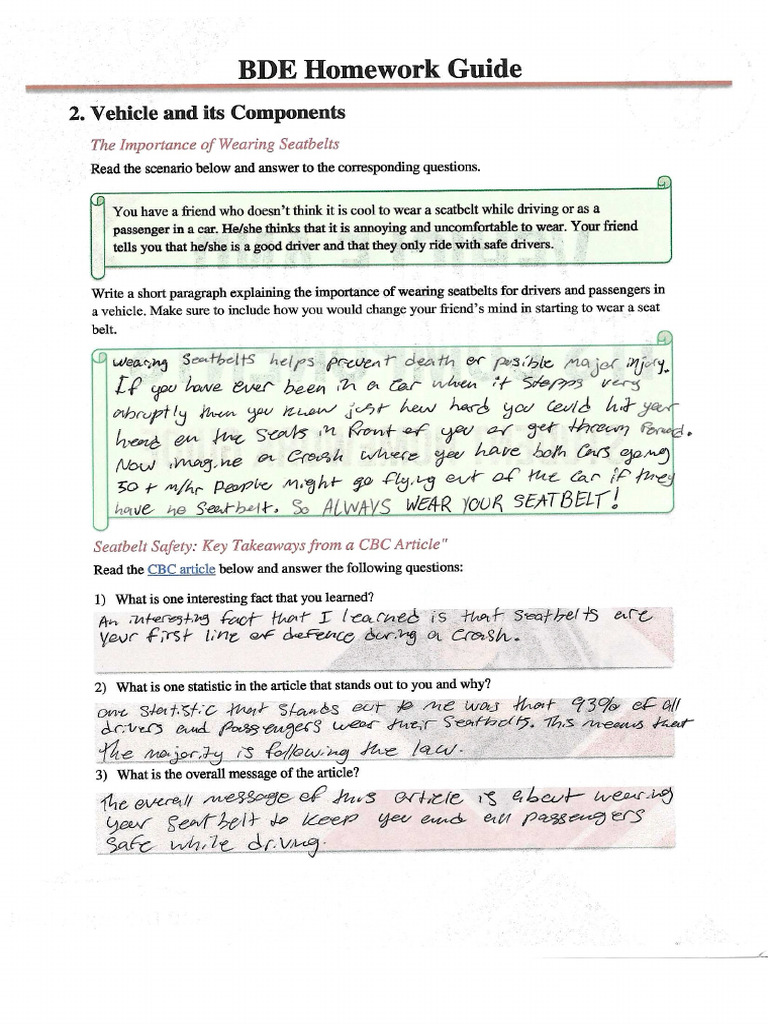 BDE Homework Guide
2. Vehicle and its Components
The Importance of Wearing Seatbelts
Read the scenario below and answer to the corresponding questions.
You have a friend who doesn't think it is cool to wear a seatbelt while driving or as a
passenger in a car. He/she thinks that it is annoying and uncomfortable to wear. Your friend
tells you that he/she is a good driver and that they only ride with safe drivers.
Write a short paragraph explaining the importance of wearing seatbelts for drivers and passengers in
a vehicle. Make sure to include how you would change your friend's mind in starting to wear a seat
belt.
Wearing Seatbelts helps prevent death or posible major injury.
If you have ever been in a car when it stopps very
abruptly then you know just how hard you could hit your
head on the seats in front of you or get thrown forward.
Now imagine a crash where you have both cars going
50 + m/hr people might go flying out of the car if they
have no seatbelt. So ALWAYS WEAR YOUR SEATBELT!
Seatbelt Safety: Key Takeaways from a CBC Article"
Read the CBC article below and answer the following questions:
1) What is one interesting fact that you learned?
An interesting fact that I learned is that seatbelts are
your first line of defence during a crash.
2) What is one statistic in the article that stands out to you and why?
One statistic that stands out to me was that 93% of all
drivers and passengers wear their seatbelts. This means that
the majority is following the law.
3) What is the overall message of the article?
The overall message of this article is about wearing
your seatbelt to keep you and all passengers
safe while driving.